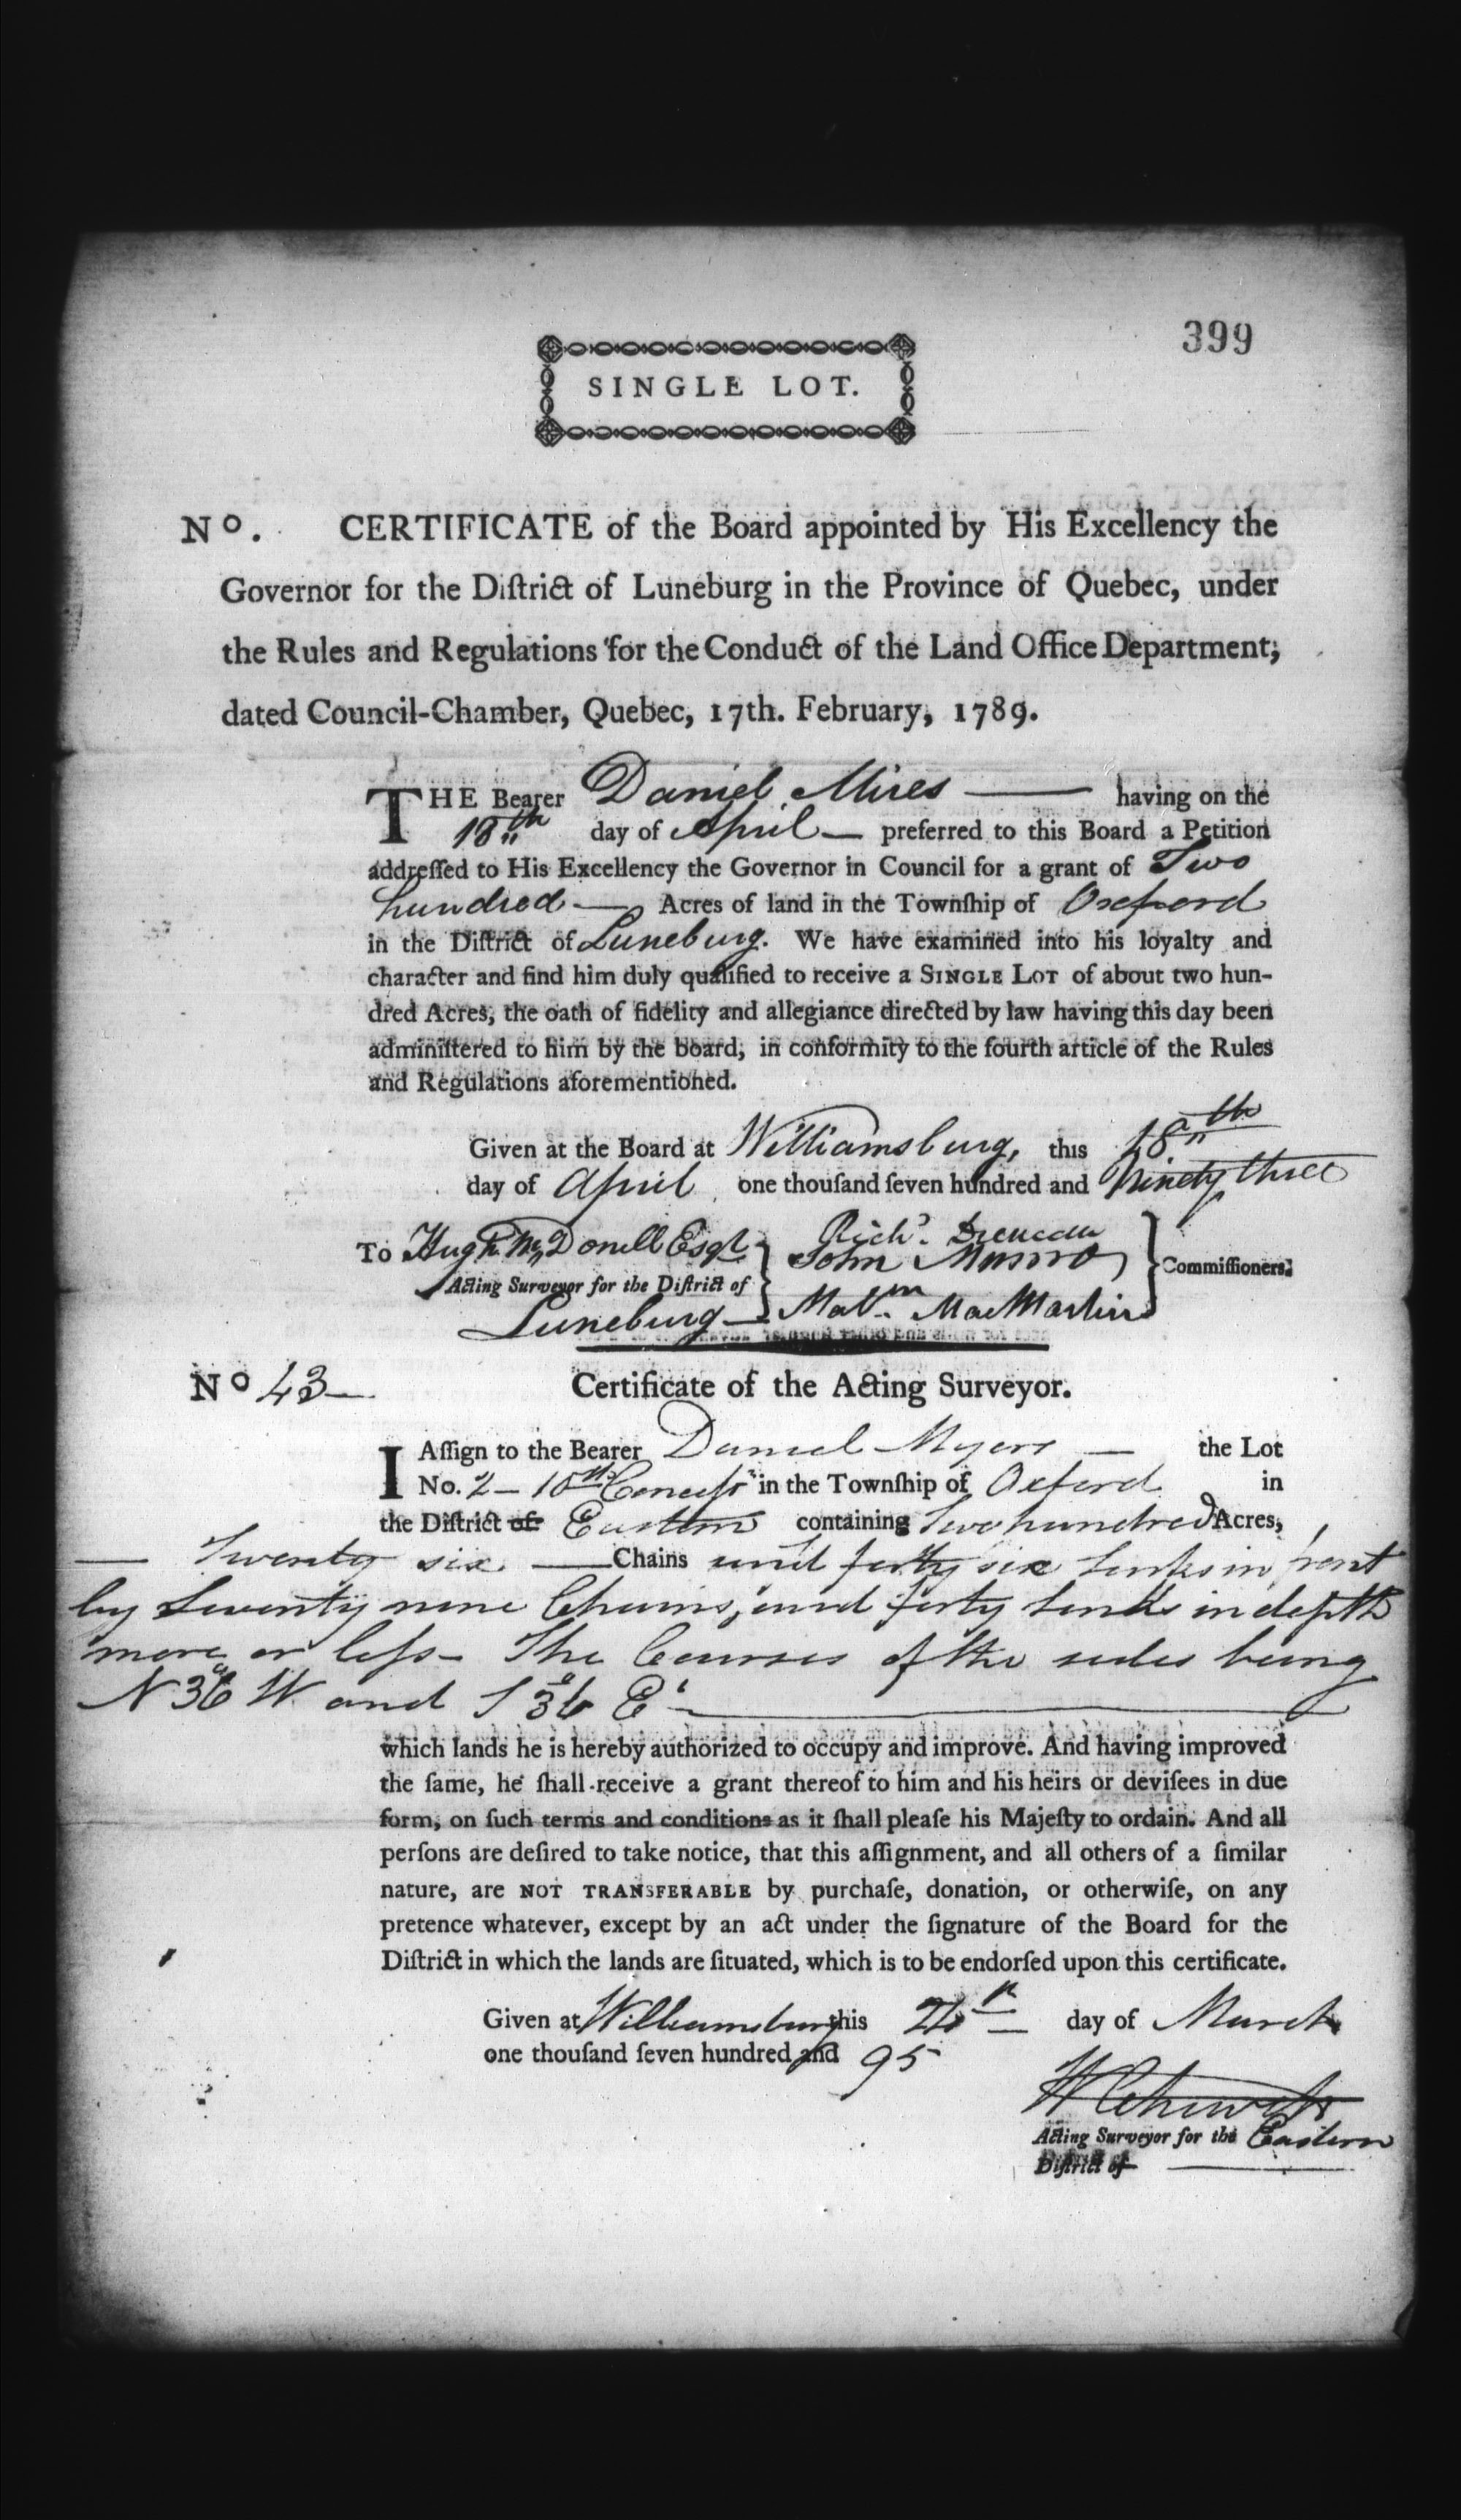 399
SINGLE LOT.
Nº. CERTIFICATE of the Board appointed by His Excellency the
Governor for the Diſtrict of Luneburg in the Province of Quebec, under
the Rules and Regulations for the Conduct of the Land Office Department;
dated Council-Chamber, Quebec, 17th. February, 1789.
THE Bearer Daniel Mires — having on the
18th day of April — preferred to this Board a Petition
addreſſed to His Excellency the Governor in Council for a grant of Two
hundred — Acres of land in the Townſhip of Oxford
in the Diſtrict of Luneburg. We have examined into his loyalty and
character and find him duly qualified to receive a SINGLE LOT of about two hun-
dred Acres, the oath of fidelity and allegiance directed by law having this day been
adminiſtered to him by the board, in conformity to the fourth article of the Rules
and Regulations aforementioned.
Given at the Board at Williamsburg, this 18th
day of April one thouſand ſeven hundred and Ninety three
To Hugh McDonell Esqr. Richd. Duncan
John Munro Commiſſioners.
Acting Surveyor for the Diſtrict of
Luneburg — Malm. MacMartin
Nº 43 — Certificate of the Acting Surveyor.
I Aſſign to the Bearer Daniel Myers — the Lot
No. 2 — 10th Conceſs in the Townſhip of Oxford in
the Diſtrict of Eastern containing Two hundred Acres,
— Twenty six — Chains and forty six Links in front
by Seventy nine Chains, and forty Links in depth
more or leſs — The Courses of the sides being
N 36° W and S 36° E —
which lands he is hereby authorized to occupy and improve. And having improved
the ſame, he ſhall receive a grant thereof to him and his heirs or deviſees in due
form, on ſuch terms and conditions as it ſhall pleaſe his Majeſty to ordain. And all
perſons are deſired to take notice, that this aſſignment, and all others of a ſimilar
nature, are NOT TRANSFERABLE by purchaſe, donation, or otherwiſe, on any
pretence whatever, except by an act under the ſignature of the Board for the
Diſtrict in which the lands are ſituated, which is to be endorſed upon this certificate.
Given at Williamsburg this day of March
one thouſand ſeven hundred and 95
W Chewett
Acting Surveyor for the Eastern
Diſtrict of —